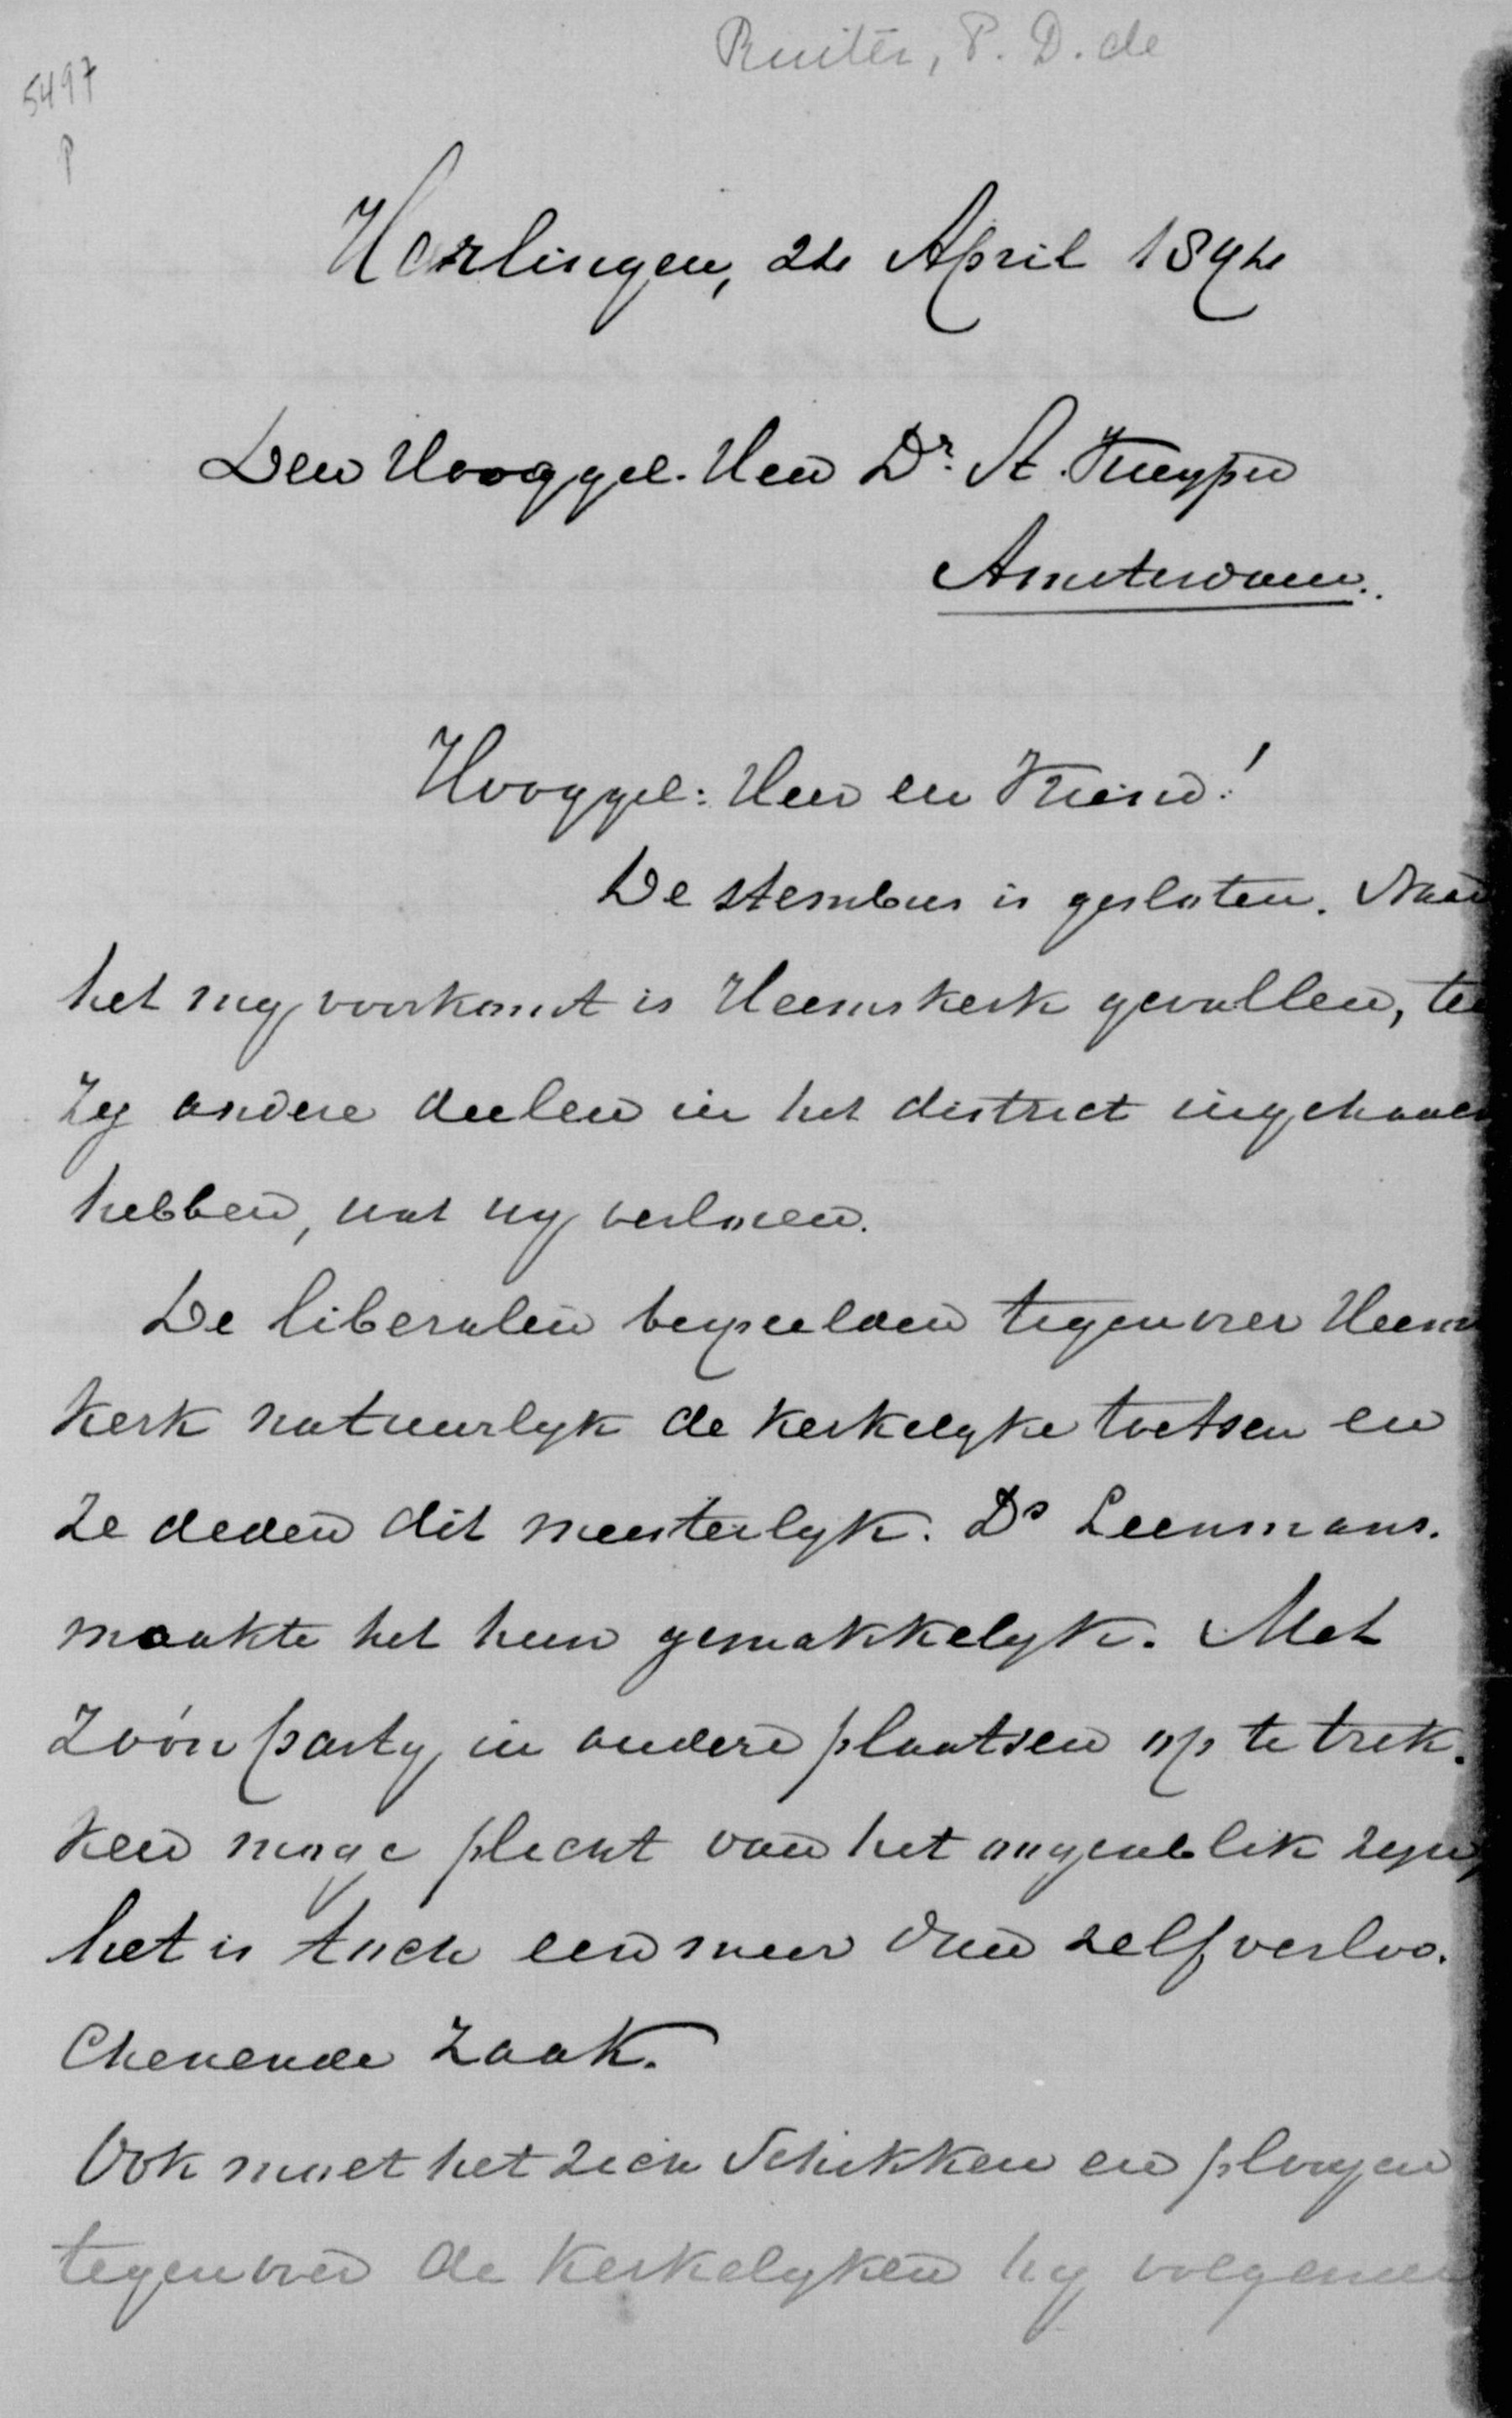 Ruiter, P. D. de
5497
P
Harlingen, 24 April 1894
Den Hooggel. Heer Dr. A. Kuyper
Amsterdam.
Hooggel: Heer en Vriend!
De stembus is gesloten. Naar
het my voorkomt is Heemskerk gevallen, te
zy andere deelen in het district ingehaald
hebben, wat wy verloren.
De liberalen bespeelden tegenover Heems
kerk natuurlyk de kerkelyke toetsen en
ze deden dit meesterlyk. Ds Leenmans.
maakte het hun gemakkelyk. Met
zóó'n party in andere plaatsen op te trek.
ken moge plicht van het oogenblik zyn,
het is toch een meer dan zelfverloo.
chenende zaak.
Ook moet het zich schikken en plooyen
tegenover de kerkelyken by volgende